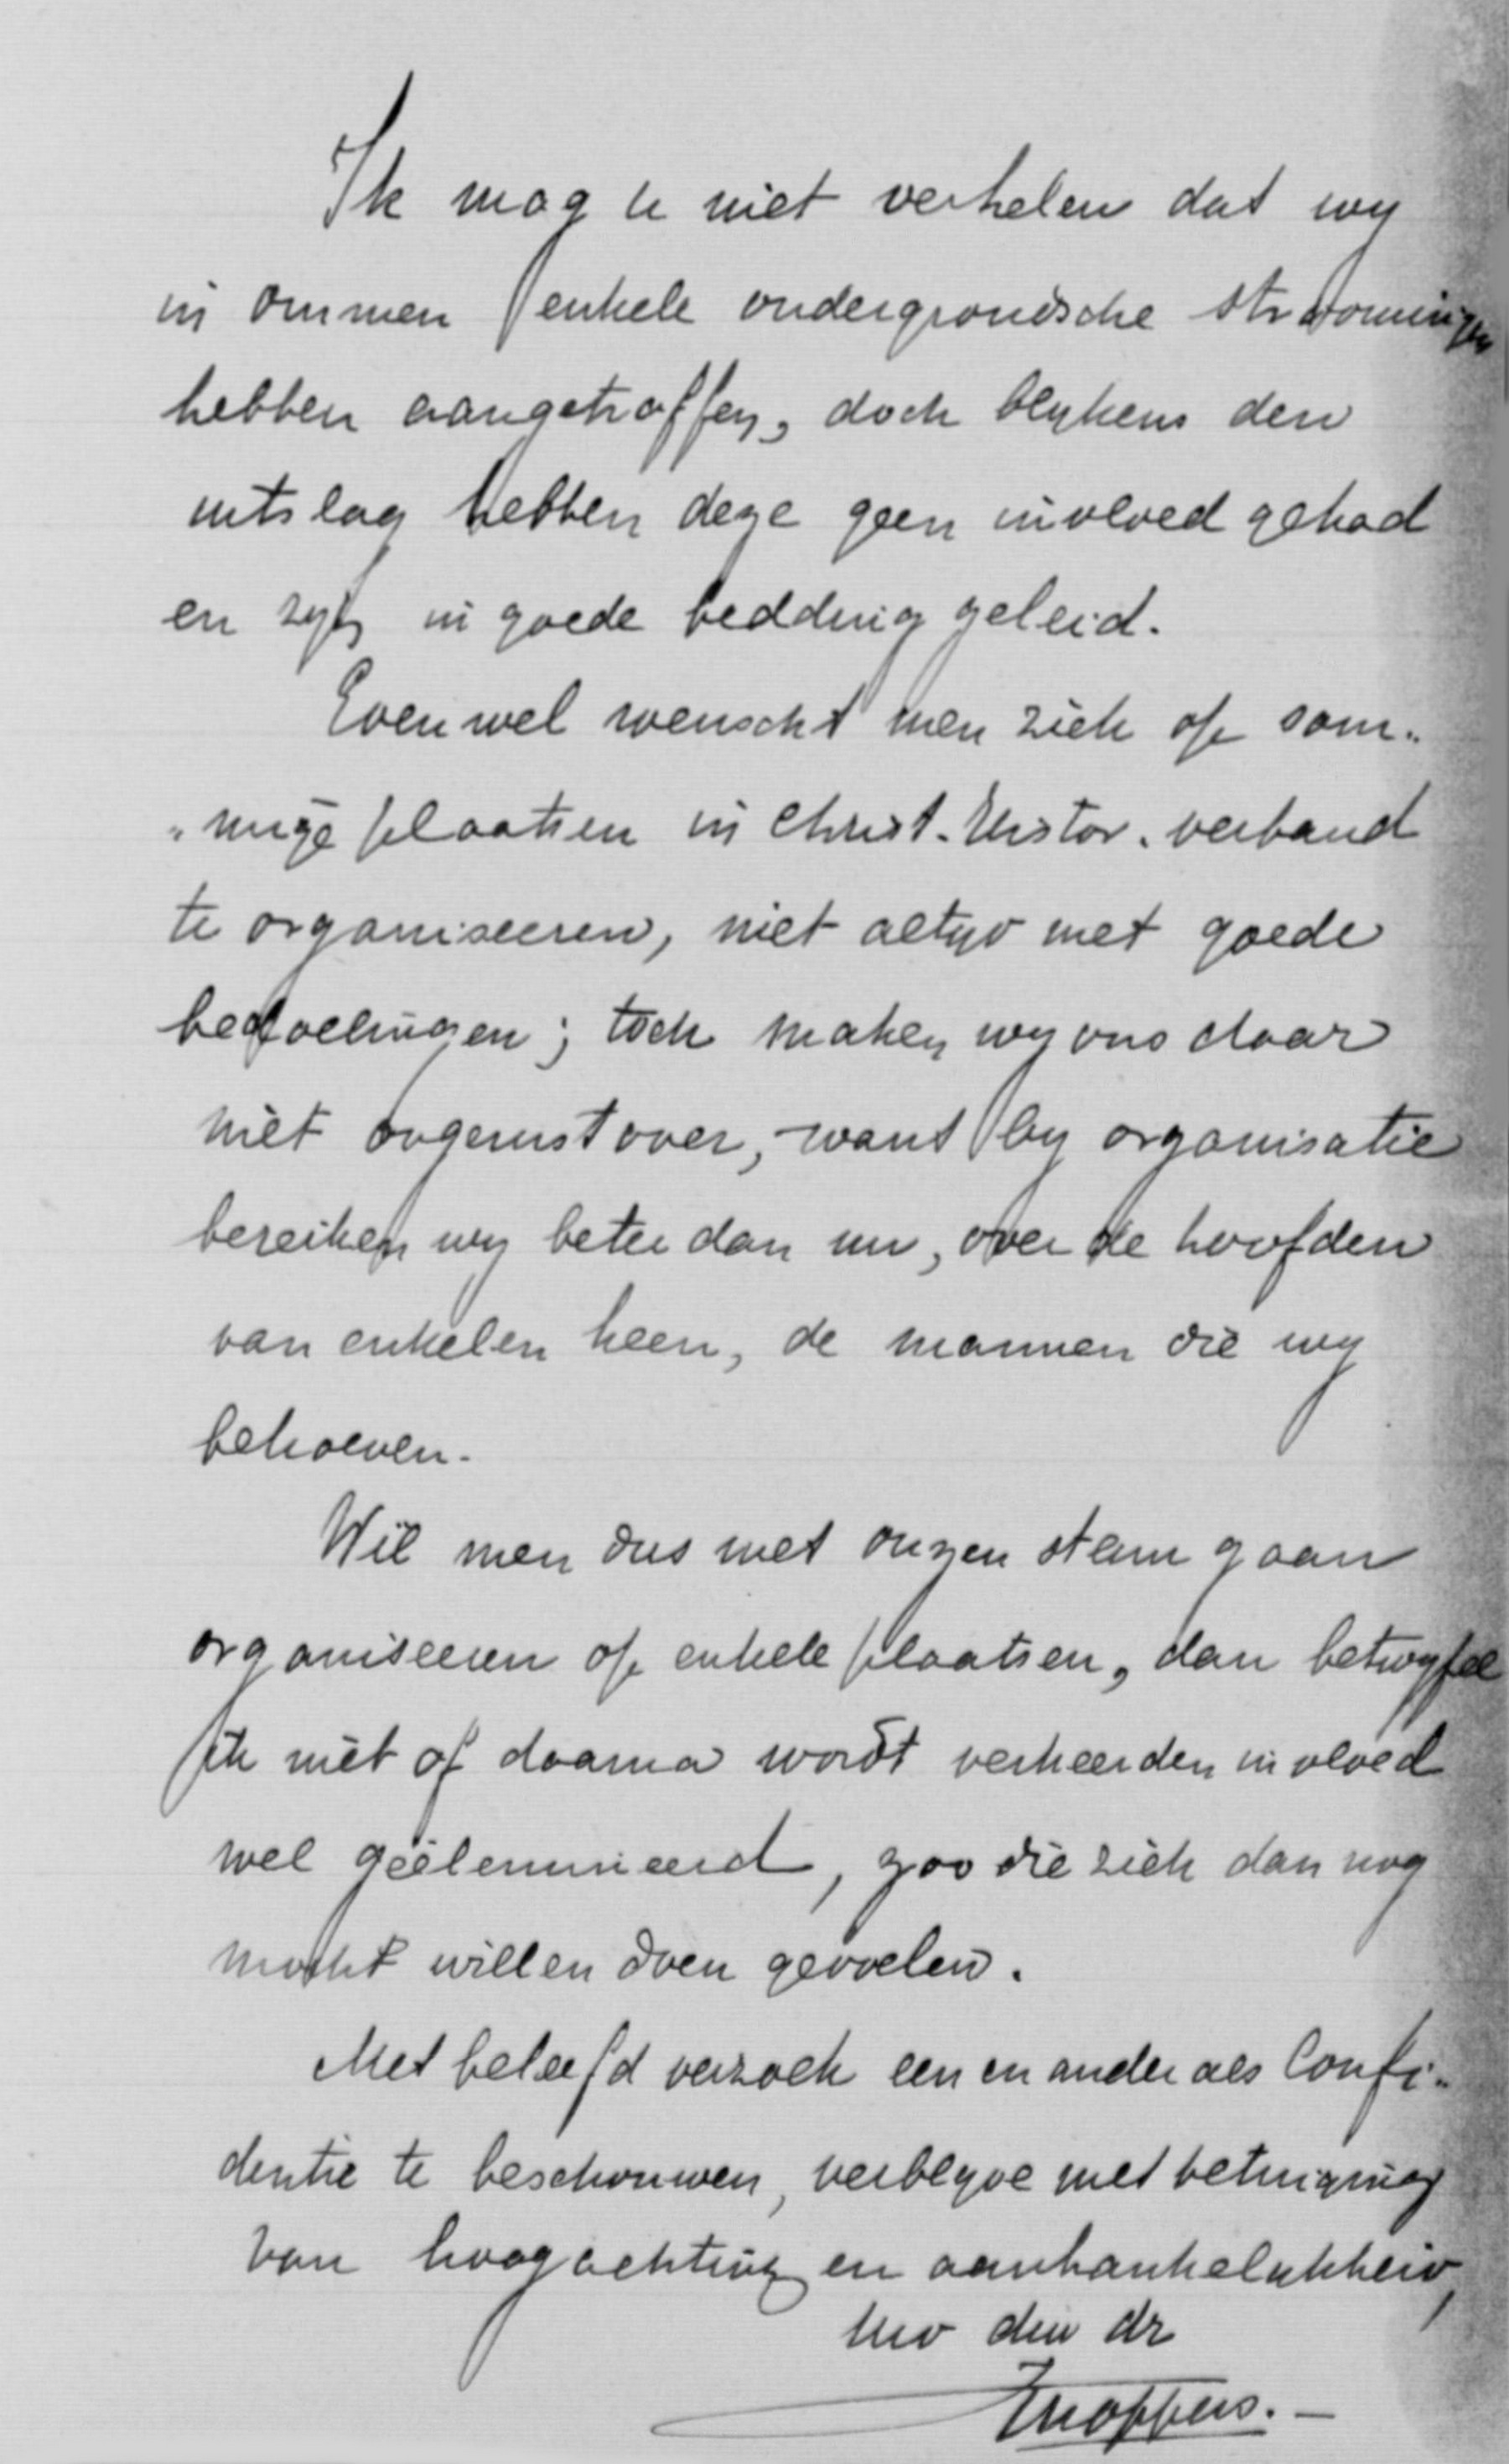 Ik mag u niet verhelen dat wy
in Ommen enkele ondergrondsche stroomingen
hebben aangetroffen, doch blykens den
uitslag hebben deze geen invloed gehad
en zyn in goede bedding geleid.
Evenwel wenscht men zich op som„
„mige plaatsen in Christ. Histor. verband
te organiseeren, niet altyd met goede
bedoelingen; toch maken wy ons daar
niet ongerust over, want by organisatie
bereiken wy beter dan nu, over de hoofden
van enkelen heen, de mannen die wy
behoeven.
Wil men dus met onzen steun gaan
organiseeren op enkele plaatsen, dan betwyfel
ik niet of daarna wordt verkeerden invloed
wel geëlemineerd, zoo die zich dan nog
mocht willen doen gevoelen.
Met beleefd verzoek een en ander als Confi„
dentie te beschouwen, verblyve met betuiging
van hoogachting en aanhankelykheid,
Uw dw dr
Knoppers.—